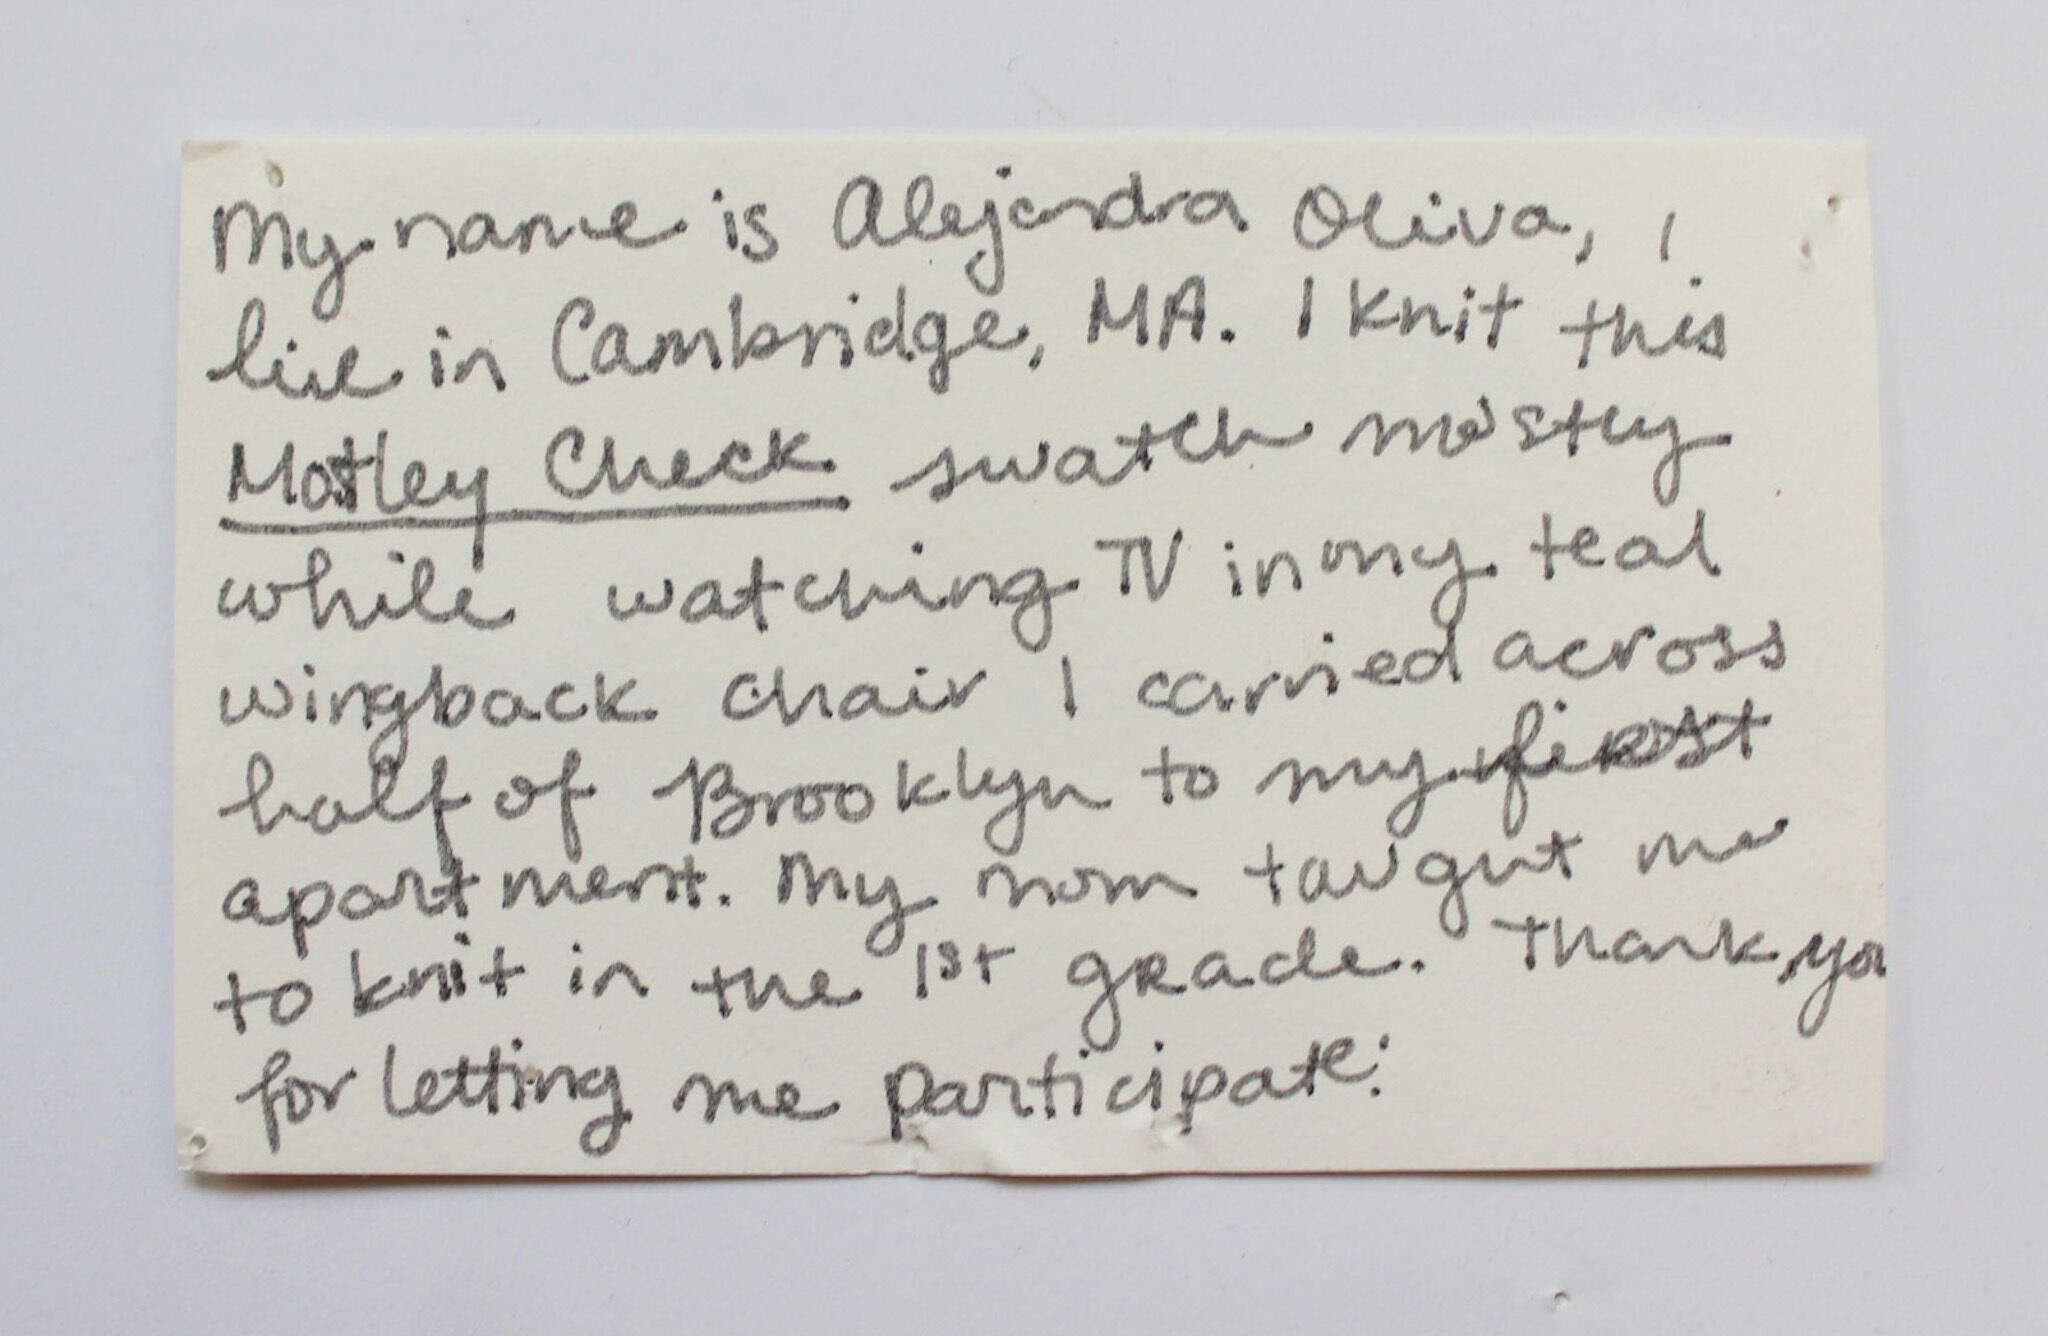 My name is Alejandra Oliva, I
live in Cambridge, MA. I knit this
Motley Check swatch mostly
while watching TV in my teal
wingback chair I carried across
half of Brooklyn to my first
apartment. My mom taught me
to knit in the 1st grade. Thank you
for letting me participate!